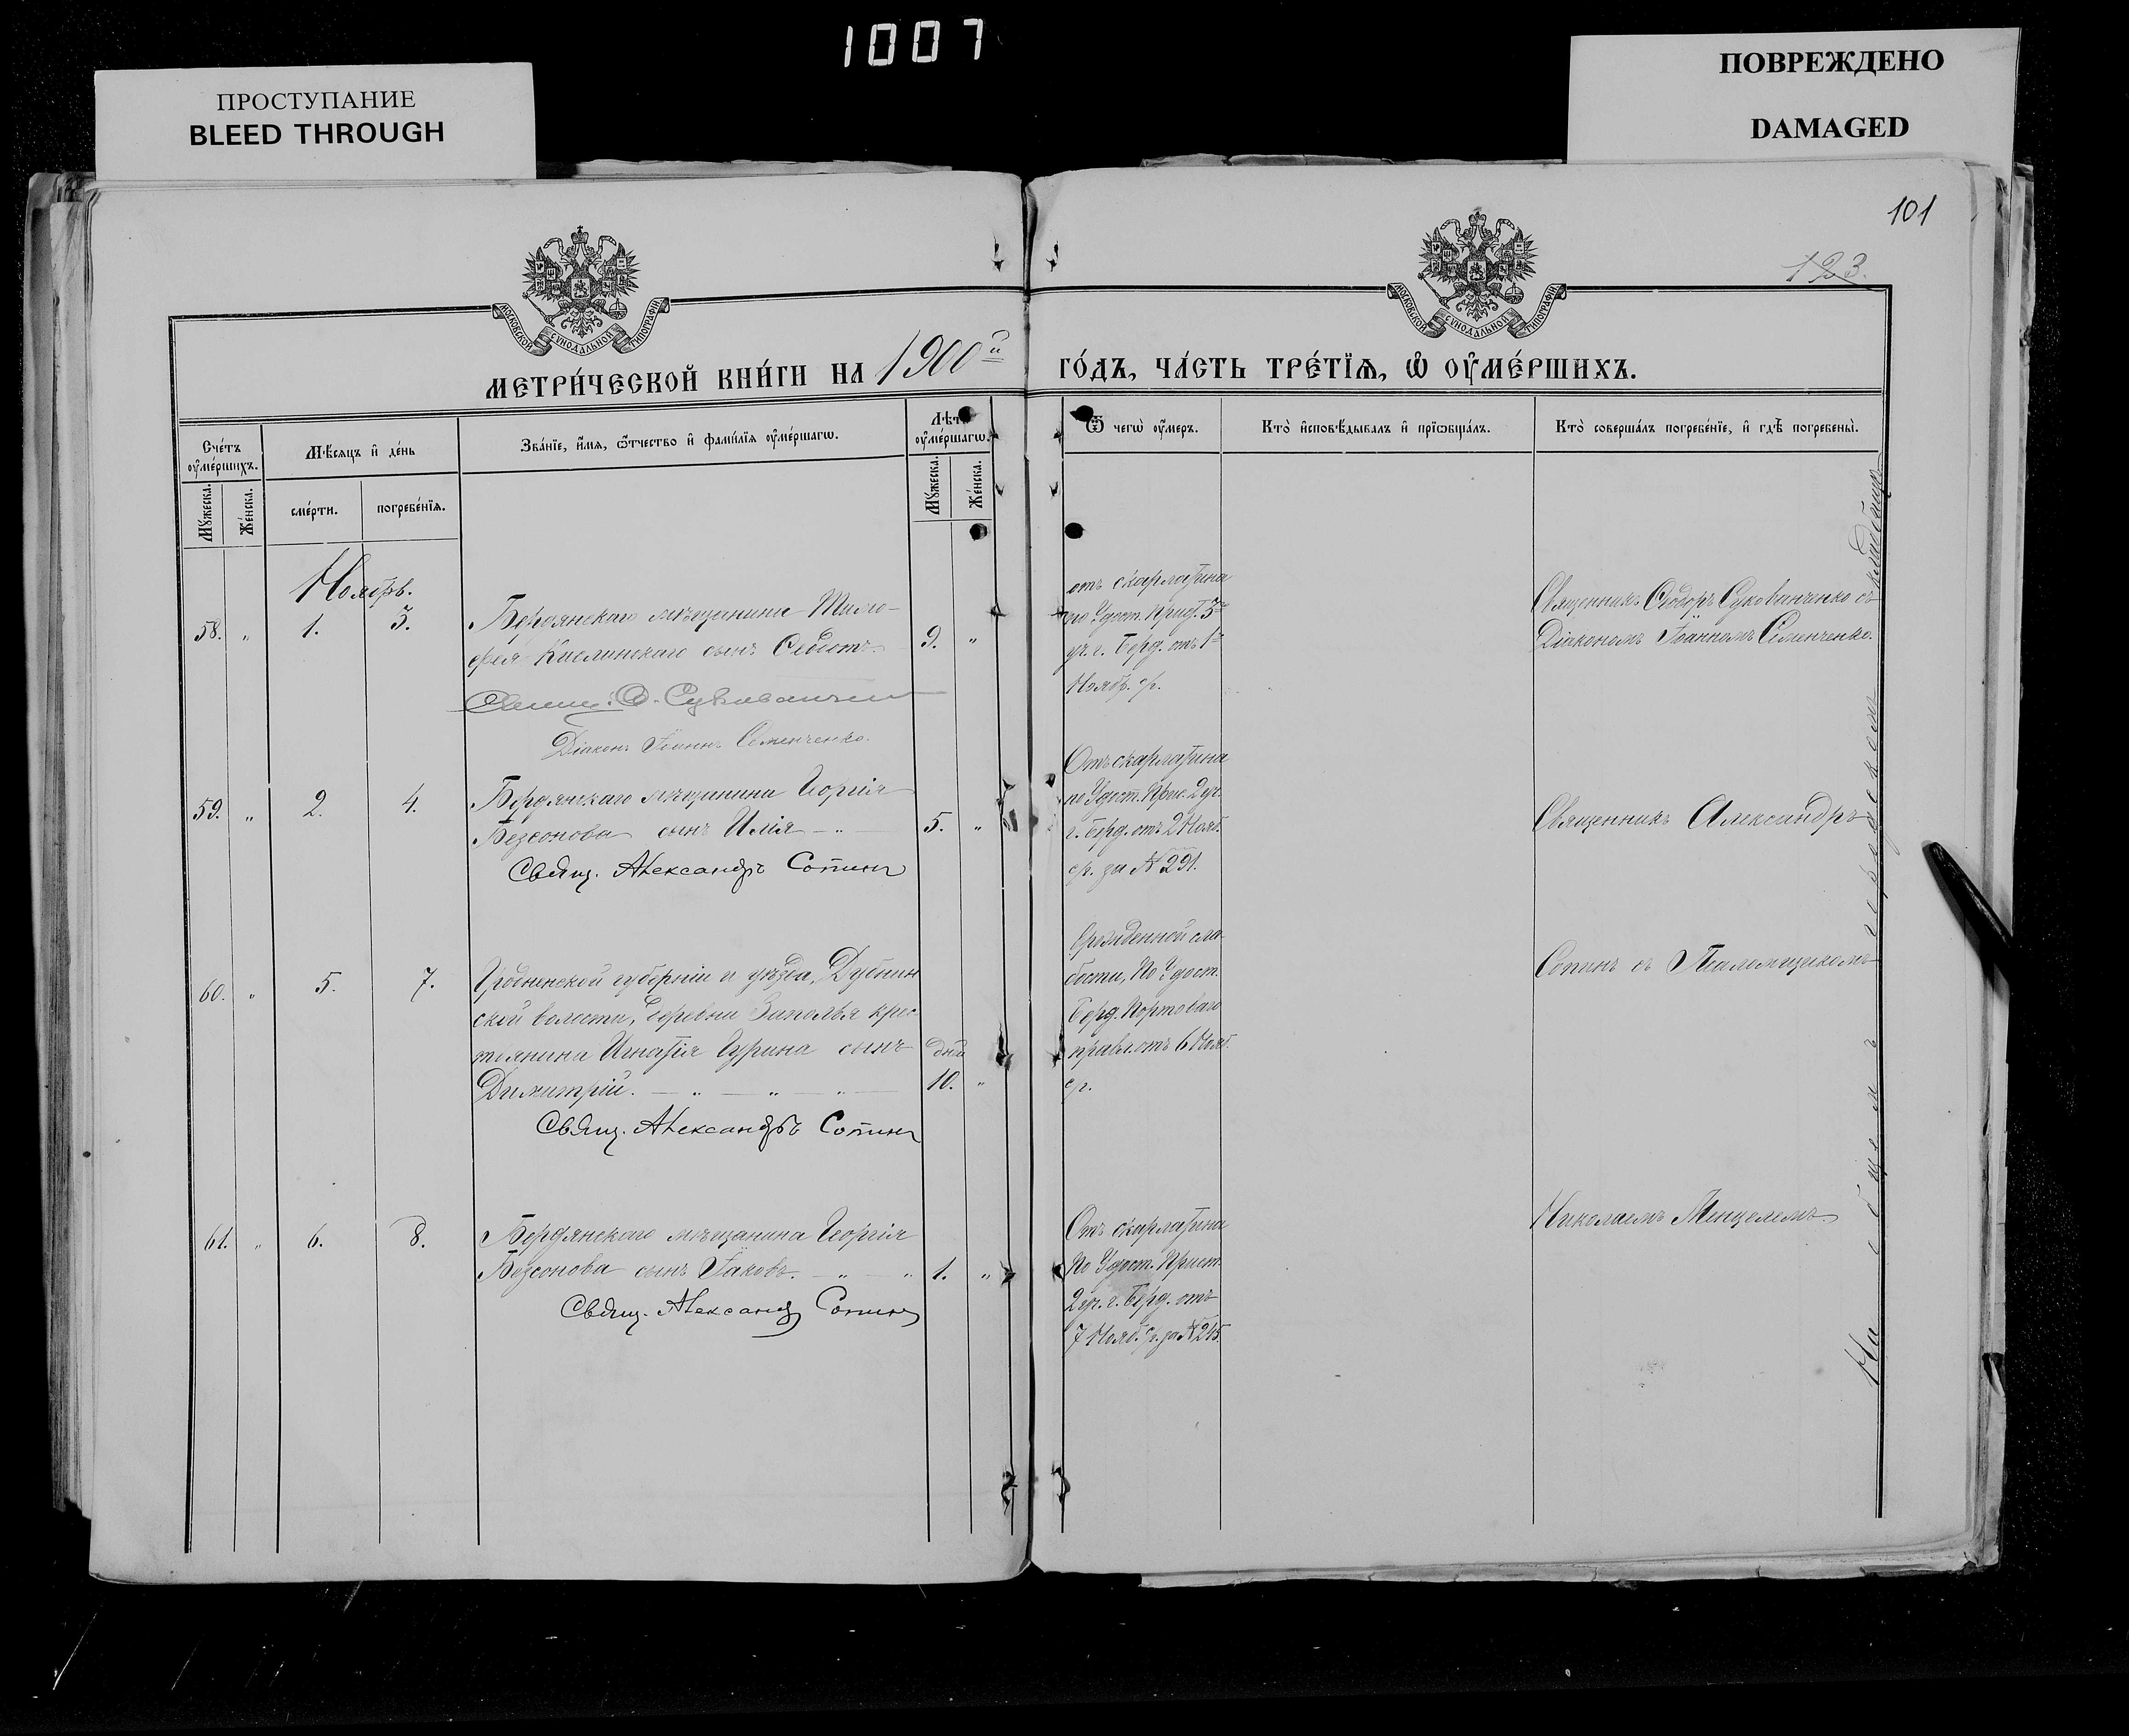 1007
ПРОСТУПАНИЕ
BLEED THROUGH
ПОВРЕЖДЕНО
DAMAGED
101
123.
МОСКОВСКОЙ СѴНОДАЛЬНОЙ ТИПОГРАФІИ
МОСКОВСКОЙ СѴНОДАЛЬНОЙ ТИПОГРАФІИ
МЕТРИ́ЧЕСКОЙ КНИ́ГИ НА 1900й
ГО́ДЪ, ЧА́СТЬ ТРЕ́ТЇѦ, Ѡ҆ ОУ҆МЕ́РШИХЪ.
Сче́тъ оу҆ме́ршихъ.
Мꙋ́жеска.
Же́нска.
Мѣ́сѧцъ и҆ де́нь
сме́рти.
погребе́нїѧ.
Зва́нїе, и҆́мѧ, ѻ҆́тчество и҆ фами́лїѧ оу҆ме́ршагѡ.
Лѣт
оу҆ме́ршагѡ.
Мꙋ́жеска.
Же́нска.
Ѿ чегѡ̀ оу҆́меръ.
Кто̀ и҆сповѣ́дывалъ и҆ прїѡбща́лъ.
Кто̀ соверша́лъ погребе́нїе, и҆ гдѣ̀ погребены̀.
Ноябрь.
58. " 1. 3.
Бердянскаго мѣщанина Тимо-
фея Кислинскаго сынъ
9. "
Свящ. Ѳ. Сукованченко
Діаконъ Іоаннъ Семенченко.
отъ скарлатина
по Удост. Прист. 3го
уч. г. Берд. отъ 1го
Нояб. с/г.
Священникъ Ѳеодоръ Суковинченко съ
Діакономъ Іоанномъ Семенченко.
59. " 2. 4.
Бердянскаго мѣщанина Георгія
Безсонова сынъ Илія — "
5. "
Свящ. Александръ Сопинъ
Отъ скарлатина
по Удост. Прис. 2 уч.
г. Берд. отъ 2 Нояб.
с/г. за № 291.
Священникъ Александръ
60. " 5. 7.
Гродненской губерніи и уѣзда, Дубнин
ской волости, деревни Заполья крес-
тьянина Игнатія Гурина сынъ
Димитрій. — " — " — " —
дней
10. "
Свящ. Александръ Сопинъ
Врожденной сла-
бости, По Удост.
Берд. Портоваго
правл. отъ 6 Нояб.
с/г.
Сопинъ съ Псаломщикомъ
61. " 6. 8.
Бердянскаго мѣщанина Георгія
Безсонова сынъ Іаковъ. — " — "
1. "
Свящ. Александр Сопинъ
Отъ скарлатина
По Удост. Прист.
2 уч. г. Берд. отъ
7 Нояб. с/г. за № 245.
Николаемъ Менцелемъ.
На общемъ городскомъ кладбищѣ